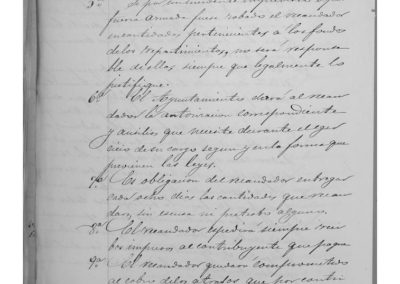 5ª Si por contundente imprevisto o por
fuerza armada fuese robado el recaudador
en cantidades pertenecientes a los fondos
de los repartimientos, no será responsa
ble de ellas siempre que legalmente lo
justifique.
6ª El Ayuntamiento dará al recau
dador la autorizacion correspondiente
y ausilios que necesite durante el eger
cicio de su cargo segun y en la forma que
previenen las leyes.
7ª Es obligacion del recaudador entregar
cada ocho dias las cantidades que recau
dare, sin escusa ni pretesto alguno.
8ª El recaudador espedirá siempre reci
bo impreso al contribuyente que pague
9ª El recaudador quedara comprometido
al cobro de los atrasos que por contri